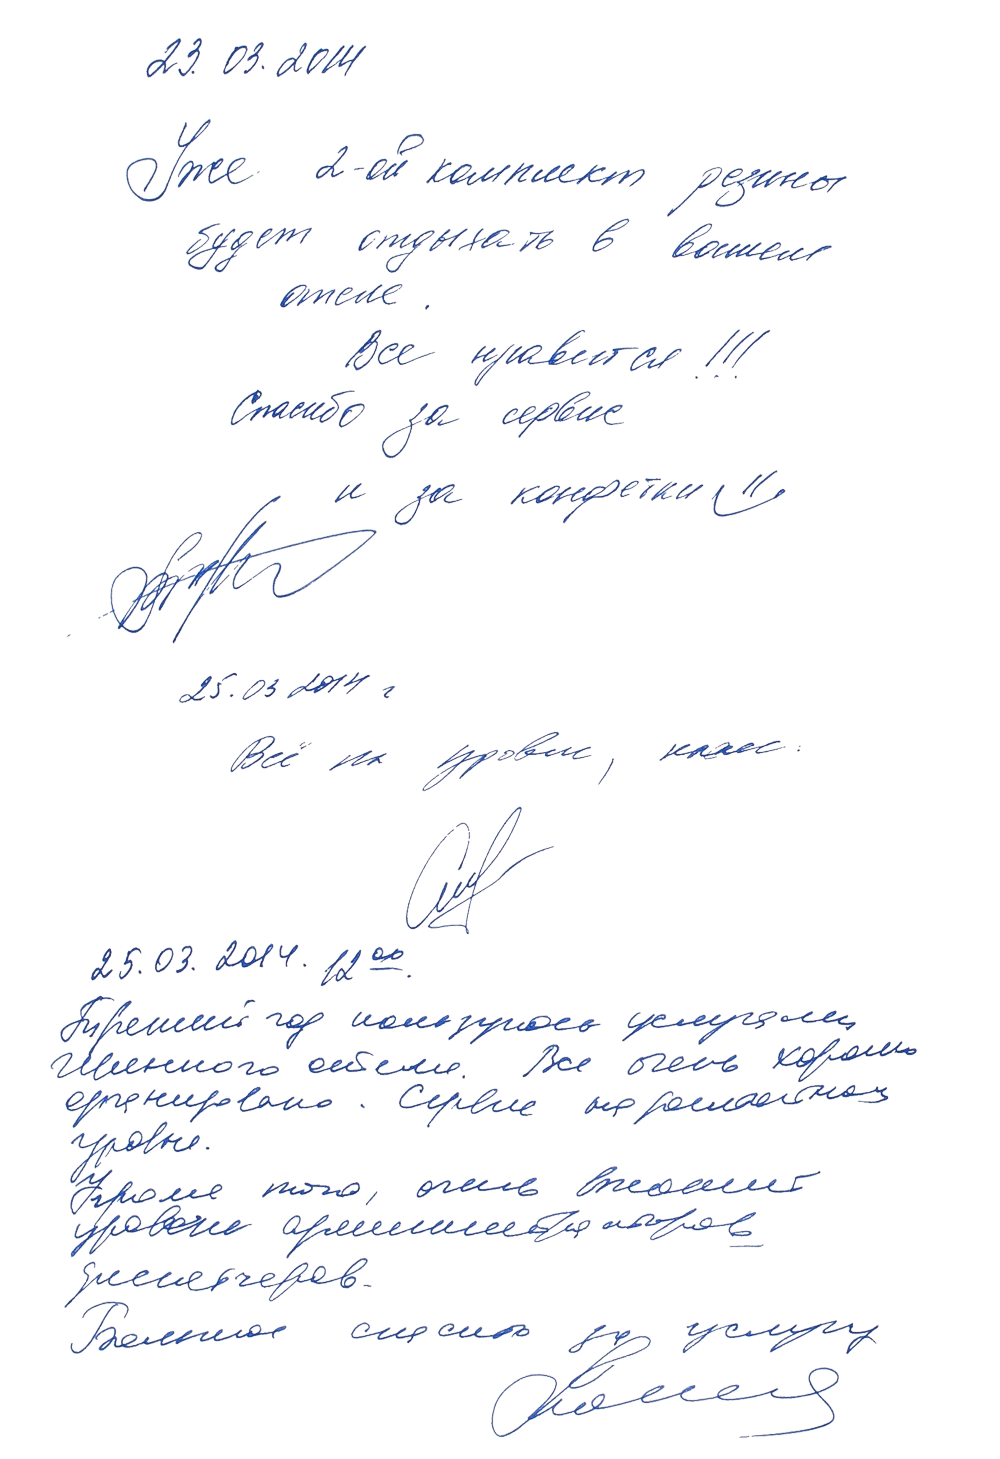 23.03.2014
Уже 2-ой комплект резины
будет отдыхать в вашем
отеле.
Все нравится!!!
Спасибо за сервис
и за конфетки
25.03 2014 г
Всё на уровне, класс.
25.03.2014. 12 00.
Третий год пользуюсь услугами
шинного отеля. Все очень хорошо
организовано. Сервис на
уровне.
Кроме того, очень высокий
уровень администраторов
диспетчеров.
Большое спасибо за услугу